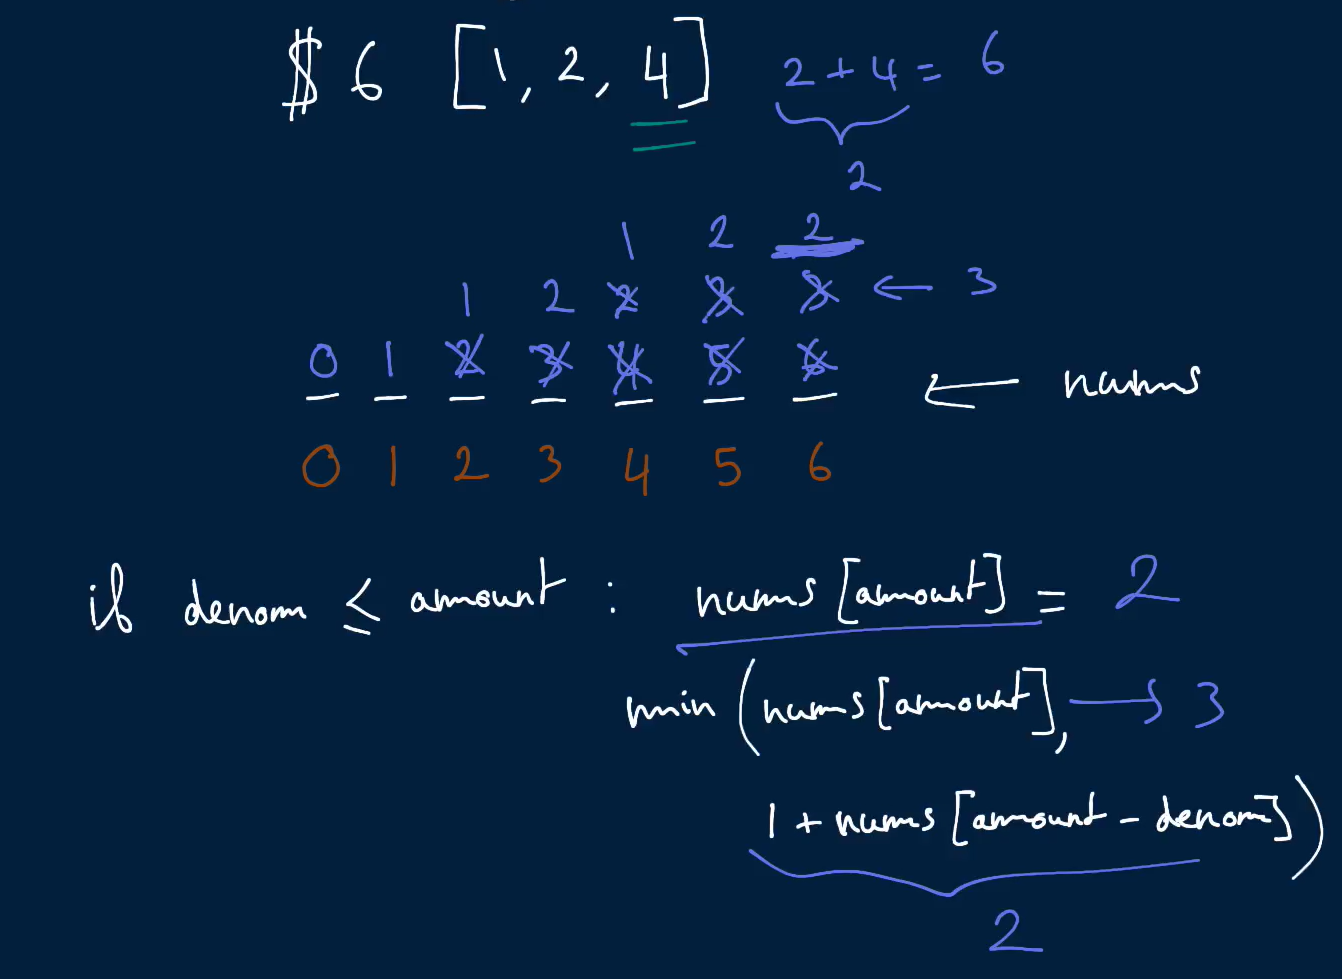 $ 6 [1, 2, 4] 2 + 4 = 6
2
1 2 2
1 2 2 3 3 ← 3
0 1 2 3 4 5 6
← nums
0 1 2 3 4 5 6
if denom ≤ amount : nums [amount] = 2
min (nums [amount], → 3
1 + nums [amount - denom])
2